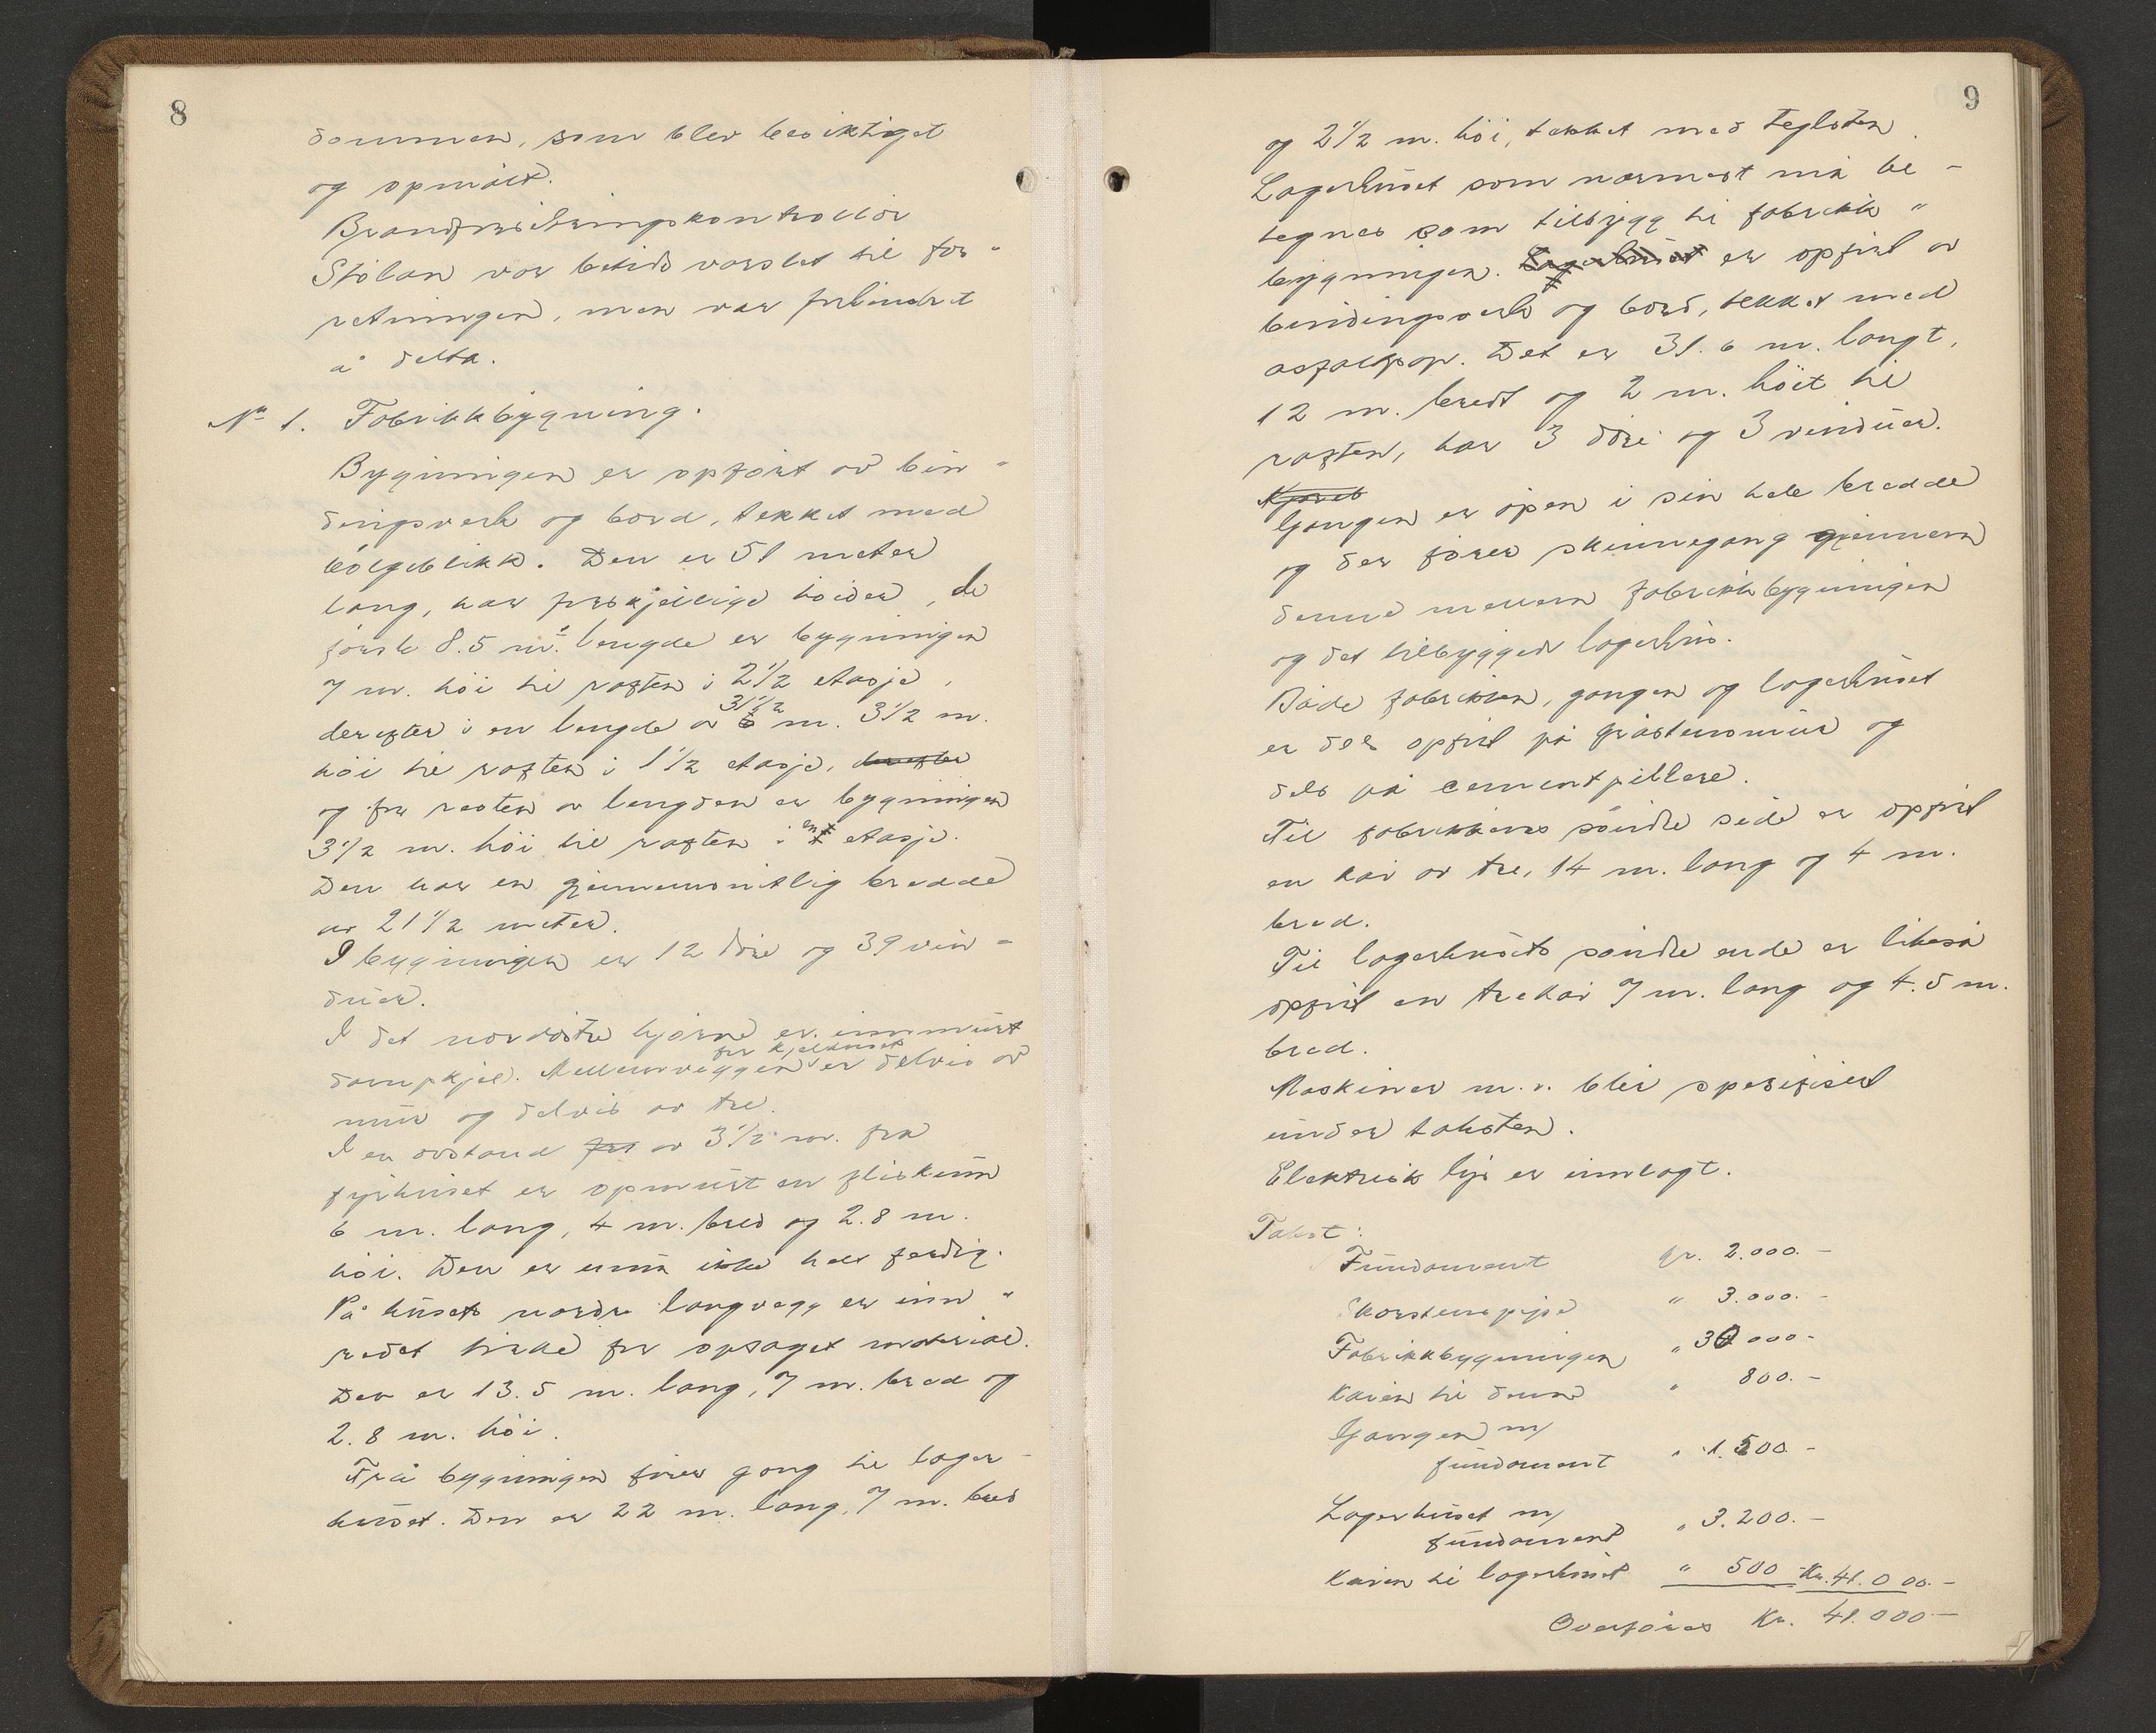 8
dommen, som blev besiktiget
og opmålt.
Brandforsikringskontrollør
Stølan var betids varslet til for-
retningen, men var forhindret
å delta.
No 1. Fabrikkbygning.
Bygningen er opført av bin-
dingsverk og bord, tekket med
bølgeblikk. Den er 51 meter
lang, har forskjellige høider, de
første 8.5 m.s lengde er bygningen
7 m. høi til raften i 2 1/2 etasje,
derefter i en lengde av 31 1/2 m. 3 1/2 m.
høi til raften i 1 1/2 etasje, derefter
og for resten av lengden er bygningen
3 1/2 m. høi til raften i en etasje.
Den har en gjennemsnitlig bredde
av 21 1/2 meter.
I bygningen er 12 døre og 39 vin-
duer.
I det nordøstre hjørne er innmuret
dampkjel. Mellemveggen for kjelhuset er delvis av
mur og delvis av tre.
I en avstand for av 3 1/2 m. fra
fyrhuset er opmurt en fliskum
6 m. lang, 4 m. bred og 2.8 m.
høi. Den er ennu ikke helt ferdig.
På husets nordre langvegg er inn-
redet tørke for opsaget materiale.
Den er 13.5 m. lang, 7 m. bred og
2.8 m. høi.
Fra bygningen fører gang til lager-
huset. Den er 22 m. lang, 7 m. bred
9
og 2 1/2 m. høi, tekket med teglsten.
Lagerhuset som nærmest må be-
tegnes som tilbygg til fabrikk-
bygningen. Lagerhuset er opført av
bindingsverk og bord, tekket med
asfaltpap. Det er 31.6 m. langt,
12 m. bredt og 2 m. høit til
raften, har 3 døre og 3 vinduer.
Gangen er åpen i sin hele bredde
og der fører skinnegang gjennem
denne mellem fabrikkbygningen
og det tilbyggede lagerhus.
Både fabrikken, gangen og lagerhuset
er dels opført på gråstensmur og
dels på cementpillere.
Til fabrikkens søndre side er opført
en kai av tre, 14 m. lang og 4 m.
bred.
Til lagerhusets søndre ende er likeså
opført en trekai 7 m. lang og 4.5 m.
bred.
Maskiner m.v. blir spesifisert
under taksten.
Elektrisk lys er innlagt.
Takst:
Fundament kr. 2.000.-
Skorstenspipe " 3.000.-
Fabrikkbygningen " 30 000-
Kaien til denne " 800.-
Gangen m/
fundament " 1.500.-
Lagerhuset m/
fundament " 3.200.-
Kaien til lagerhuset " 500 Kr. 41.000.-
Overføres Kr. 41.000-